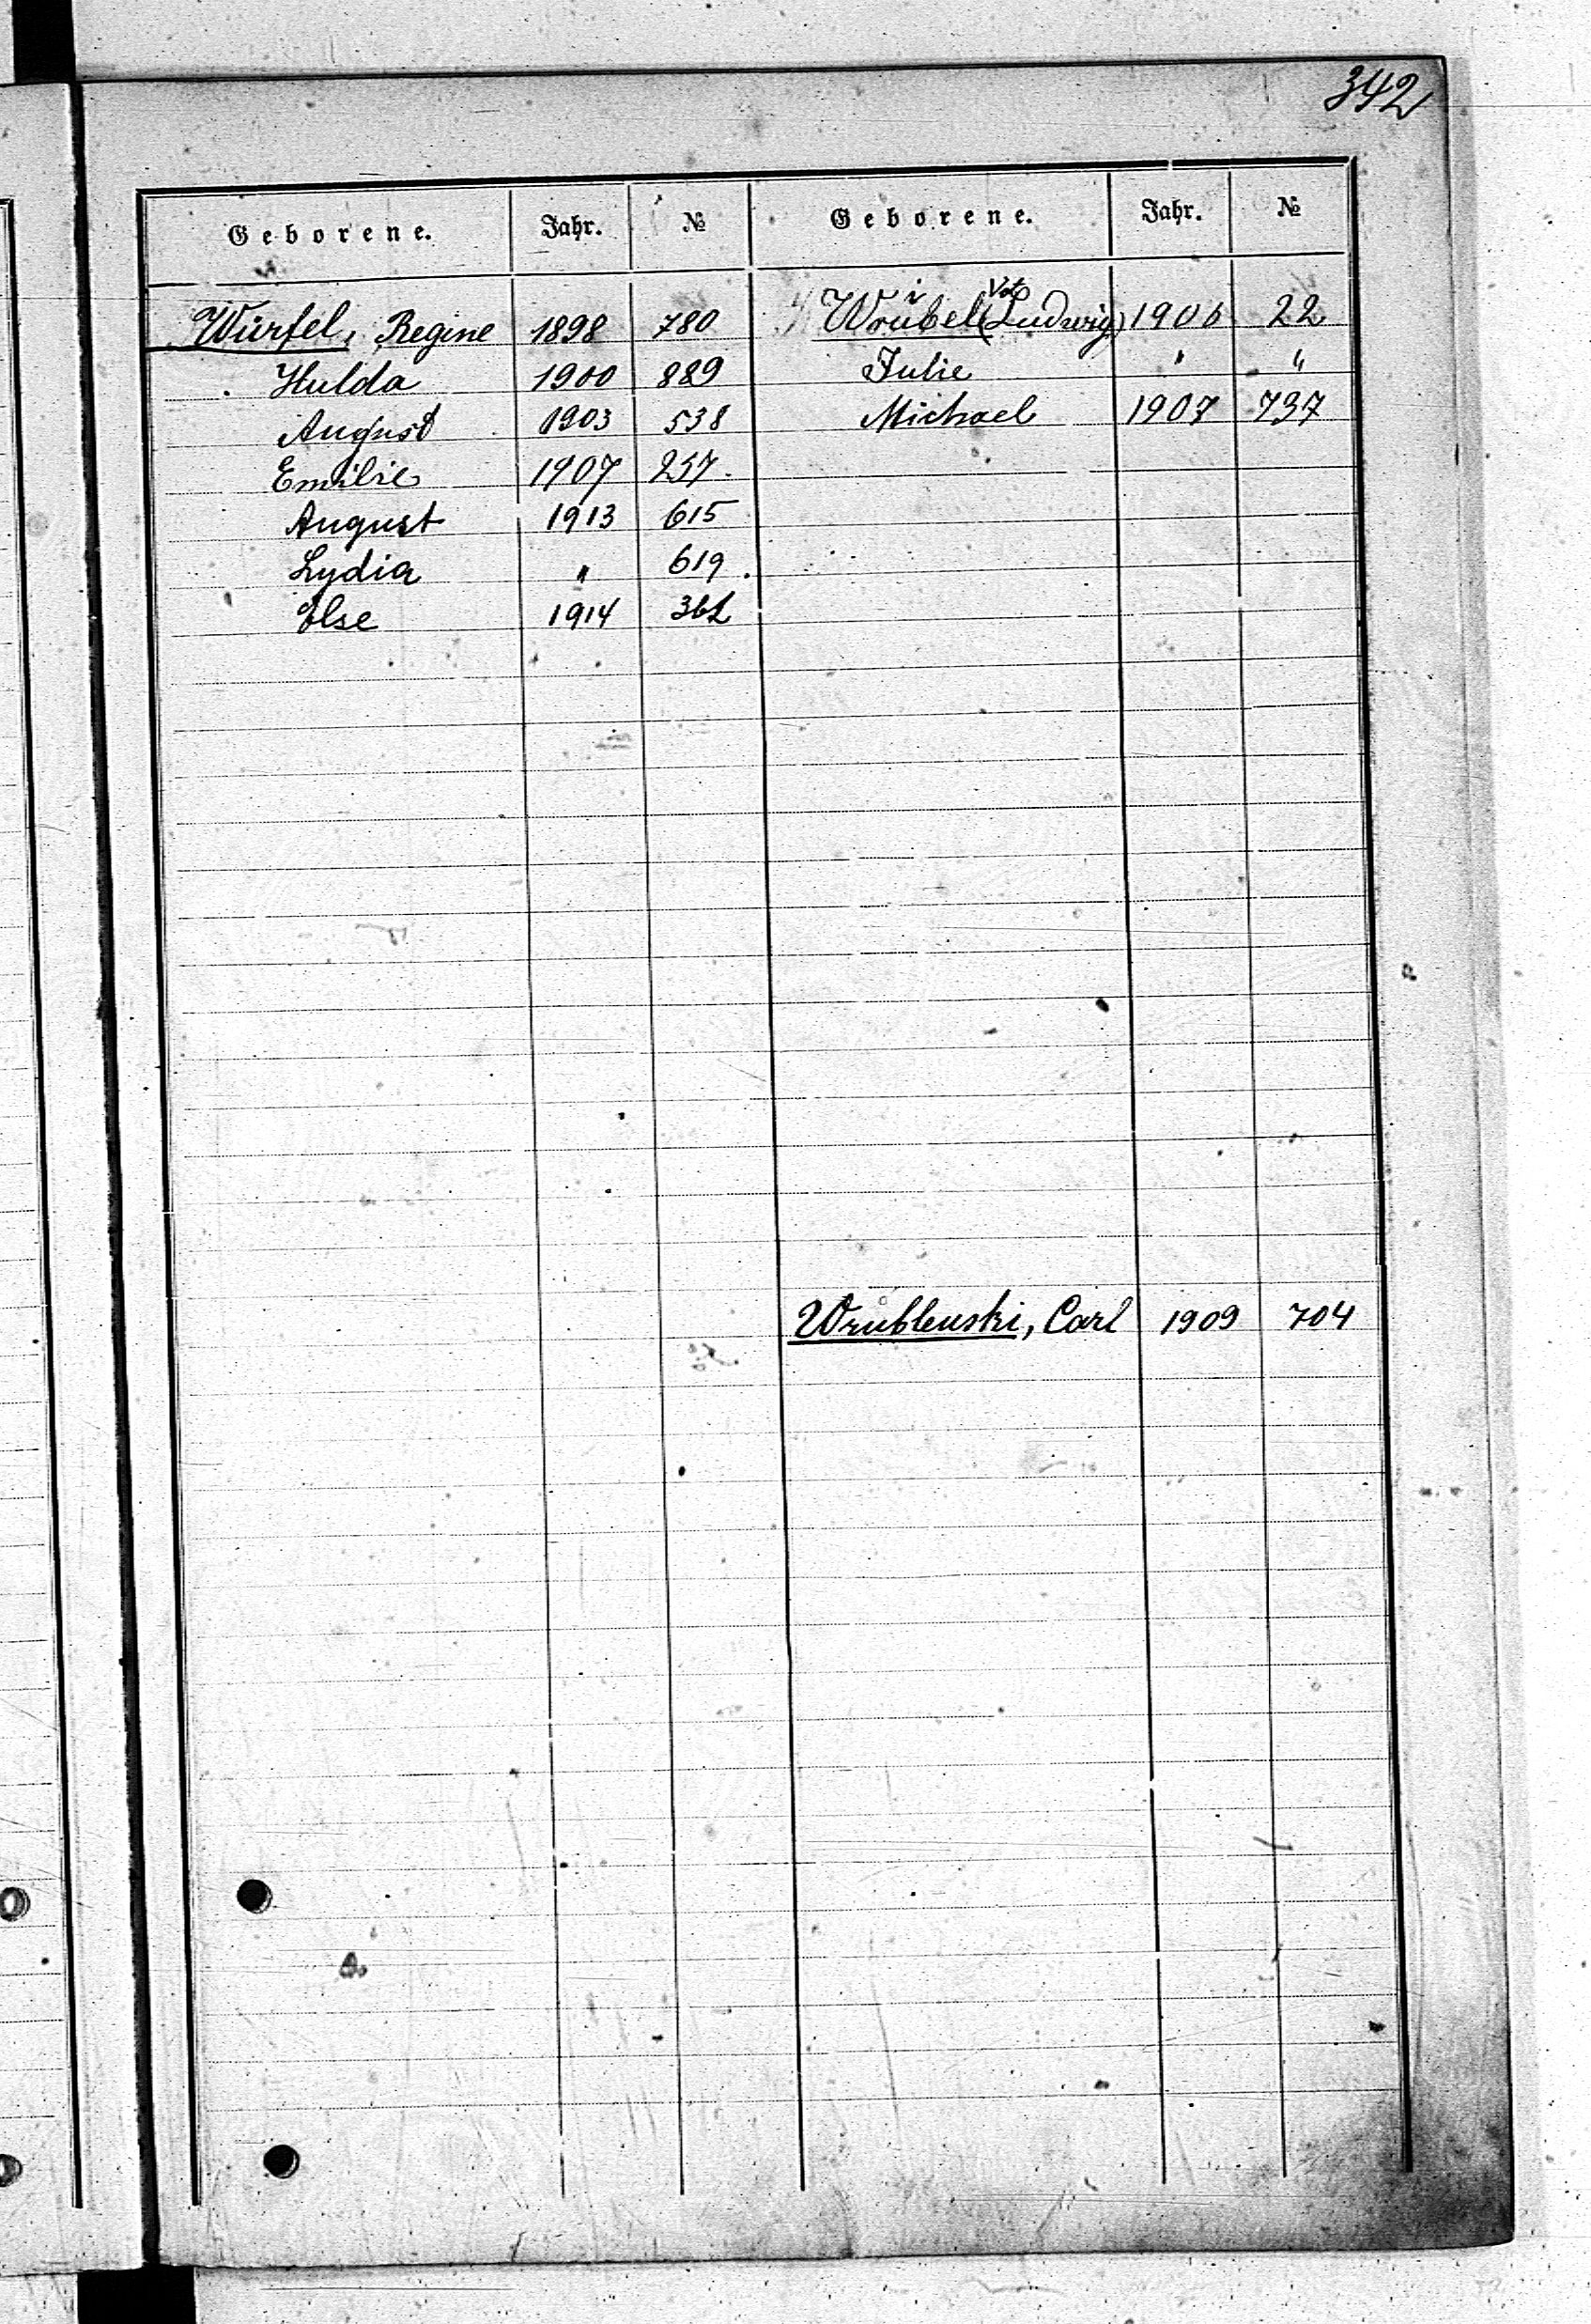 342
Geborene. Jahr. № Geborene. Jahr. №
Würfel, Regine 1898 780
Hulda 1900 889
August 1903 538
Emilie 1907 257.
August 1913 615
Lydia " 619
Else 1914
Wrubel (Ludwig) 1906 22
Julie " "
Michael 1907 737
Wrublenski, Carl 1909 704